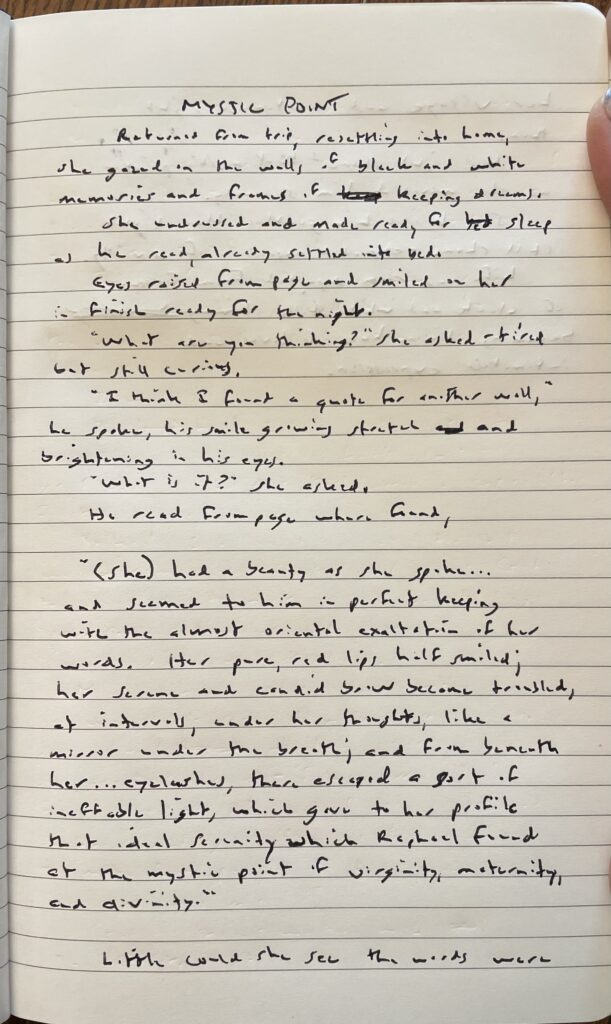 MYSTIC POINT
Returned from trip, resettling into home,
she gazed on the walls of black and white
memories and frames of keeping dreams.
She undressed and made ready for sleep
as he read, already settled into bed.
Eyes raised from page and smiled on her
in finish ready for the night.
"What are you thinking?" she asked - tired
but still curious.
"I think I found a quote for another wall,"
he spoke, his smile growing stretch and
brightening in his eyes.
"What is it?" she asked.
He read from page where found,
"(She) had a beauty as she spoke...
and seemed to him in perfect keeping
with the almost oriental exaltation of her
words. Her pure, red lips half smiled;
her serene and candid brow became troubled,
at intervals, under her thoughts, like a
mirror under the breath; and from beneath
her... eyelashes, there escaped a sort of
ineffable light, which gave to her profile
that ideal serenity which Raphael found
at the mystic point of virginity, maternity,
and divinity.""
Little could she see the words were